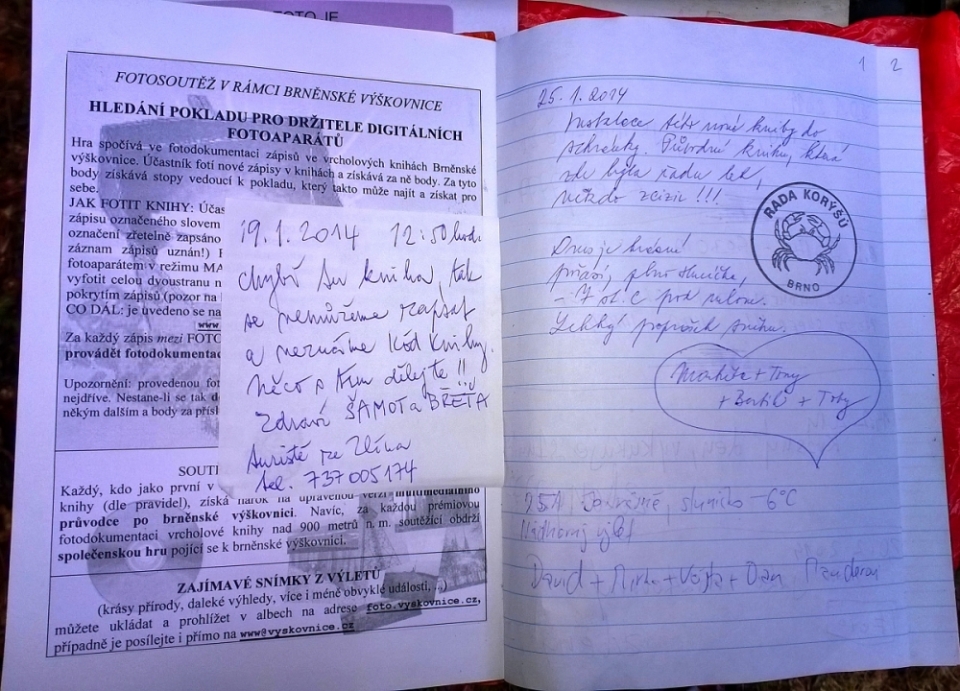 FOTO JE
FOTOSOUTĚŽ V RÁMCI BRNĚNSKÉ VÝŠKOVNICE
HLEDÁNÍ POKLADU PRO DRŽITELE DIGITÁLNÍCH
FOTOAPARÁTŮ
Hra spočívá ve fotodokumentaci zápisů ve vrcholových knihách Brněnské
výškovnice. Účastník fotí nové zápisy v knihách a získává za ně body. Za tyto
body získává stopy vedoucí k pokladu, který takto může najít a získat pro
sebe.
JAK FOTIT KNIHY: Účas
zápisu označeného slovem
označení zřetelně zapsáno
záznam zápisů uznán!)
fotoaparátem v režimu MA
vyfotit celou dvoustranu n
pokrytím zápisů (pozor na
CO DÁL: je uvedeno se na
www.
Za každý zápis mezi FOTO
provádět fotodokumentac
Upozornění: provedenou fot
nejdříve. Nestane-li se tak d
někým dalším a body za přísl
19.1.2014 12:50 hod.
chybí tu kniha, tak
se nemůžeme zapsat
a neznáme kód knihy.
něco s tím dělejte!!
Zdraví ŠAMOT a BŘEŤA
turisté ze Zlína
tel. 737005174
SOUTĚ
Každý, kdo jako první v
knihy (dle pravidel), získá nárok na upravenou verzi multimediálního
průvodce po brněnské výškovnici. Navíc, za každou prémiovou
fotodokumentaci vrcholové knihy nad 900 metrů n. m. soutěžící obdrží
společenskou hru pojící se k brněnské výškovnici.
ZAJÍMAVÉ SNÍMKY Z VÝLETŮ
(krásy přírody, daleké výhledy, více i méně obvyklé události, ...)
můžete ukládat a prohlížet v albech na adrese foto.vyskovnice.cz,
případně je posílejte i přímo na www@vyskovnice.cz
1 2
25.1.2014
Instalace této nové knihy do
schránky. Původní knihu, která
zde byla řadu let,
někdo zcizil !!!
RADA KORÝŠŮ
BRNO
Dnes je krásné
počasí, plno sluníčka,
-7 st. C pod nulou.
Lehký poprašek sněhu.
Markéta + Tony
+ Bertík + Toby
25.1. sluníčko -6°C
Nádherný výlet
David + Mirka + Vojta + Dan